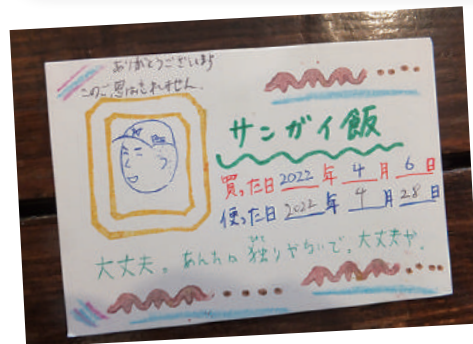 ありがとうございます
このご恩は忘れません.
サンガイ飯
買った日 2022年 4月 6日
使った日 2022年 4月 28日
大丈夫。あんたは独りやないで。大丈夫や.